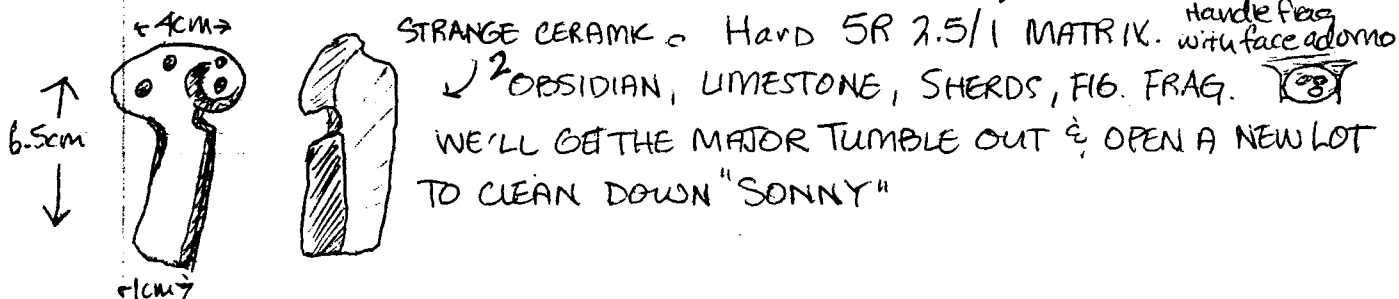 ←4cm→
STRANGE CERAMIC. HARD 5R 2.5/1 MATRIX.
Handle frag
with face adorno
2 OBSIDIAN, LIMESTONE, SHERDS, FIG. FRAG.
6.5cm
WE'LL GET THE MAJOR TUMBLE OUT & OPEN A NEW LOT
TO CLEAN DOWN "SONNY"
←1cm→